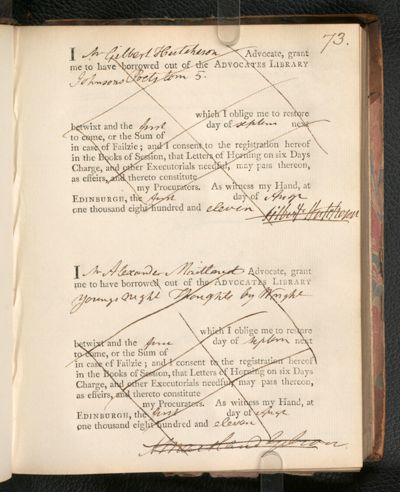 73.
I Mr Gilbert Hutcheson Advocate, grant
me to have borrowed out of the ADVOCATES LIBRARY
Johnsons Poets tom 5.
which I oblige me to restore
betwixt and the first day of septem next
to come, or the Sum of
in case of Failzie; and I consent to the registration hereof
in the Books of Session, that Letters of Horning on six Days
Charge, and other Executorials needful, may pass thereon,
as effeirs, and thereto constitute
my Procurators. As witness my Hand, at
EDINBURGH, the first day of Augt
one thousand eight hundred and eleven
Gilbert Hutcheson
I Mr Alexander Maitland Advocate, grant
me to have borrowed out of the ADVOCATES LIBRARY
youngs night Thoughts by Wright
which I oblige me to restore
betwixt and the first day of septem next
to come, or the Sum of
in case of Failzie; and I consent to the registration hereof
in the Books of Session, that Letters of Horning on six Days
Charge, and other Executorials needful, may pass thereon,
as effeirs, and thereto constitute
my Procurators. As witness my Hand, at
EDINBURGH, the first day of Augt
one thousand eight hundred and eleven
A Maitland Gibson